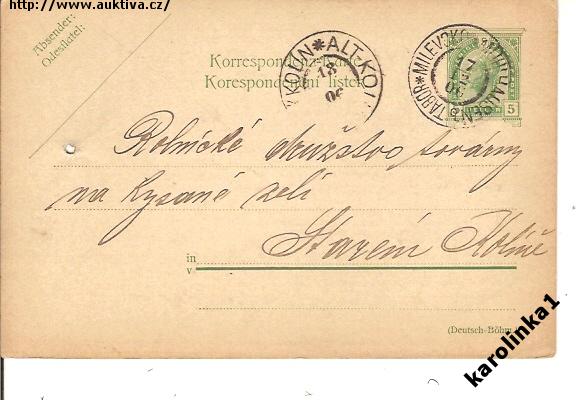 http://www.auktiva.cz/
Absender:
Odesílatel:
Korrespondenz-Karte
Korespondenční lístek
KOLÍN * ALT-KOL
18
06
TÁBOR * MILEVSKO
5
Rolnické družstvo továrny
na kysané zelí
in
v
Starém Kolíně
(Deutsch-Böhm.)
karolinka1